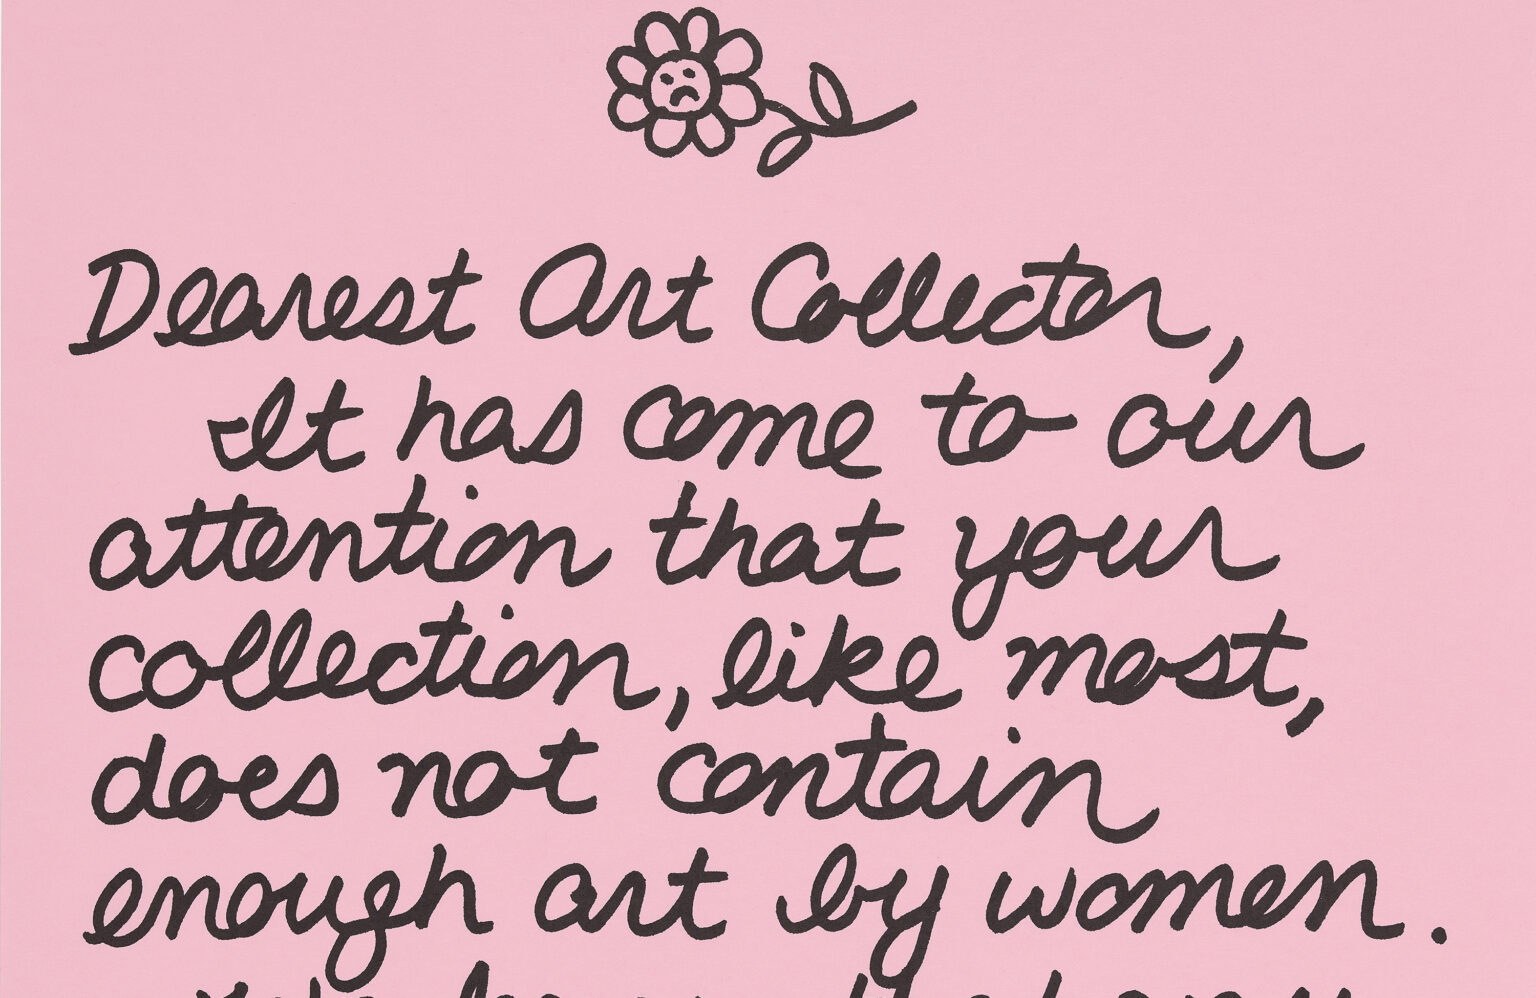 Dearest Art Collector,
It has come to our
attention that your
collection, like most,
does not contain
enough art by women.